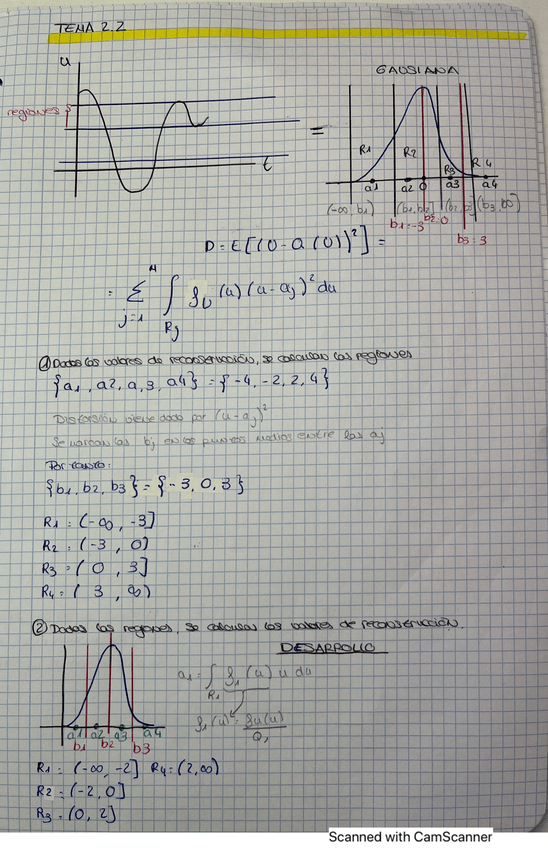 TEMA 2.2
u
GAUSIANA
regiones
t
=
R1
R2
R3
R4
a1
a2
0
a3
a4
(-∞, b1)
(b1, b2]
(b2, b3]
(b3, ∞)
b1=-3
b2=0
b3=3
D = E[(U - Q(U))²] =
= Σ j=1 M ∫ Rj fU(u)(u-aj)² du
① Dados los valores de reconstrucción, se calculan las regiones
{a1, a2, a,3, a4} = {-4, -2, 2, 4}
Distorsión viene dado por (u-aj)²
Se marcan las bj en los puntos medios entre las aj
Por tanto:
{b1, b2, b3} = {-3, 0, 3}
R1 = (-∞, -3]
R2 = (-3, 0]
R3 = (0, 3]
R4 = (3, ∞)
② Dados las regiones, se calculan los valores de reconstrucción.
DESARROLLO
a1 = ∫ R1 f1(u) u du
f1(u) = fu(u) / Q1
a1
a2
a3
a4
b1
b2
b3
R1 = (-∞, -2] R4 = (2, ∞)
R2 = (-2, 0]
R3 = (0, 2]
Scanned with CamScanner